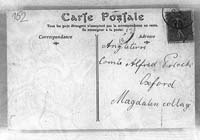 352
Carte Postale
Tous les pays étrangers n'acceptent pas la correspondance au recto.
Se renseigner à la poste
Correspondance
Adresse
Angleterre
Comte Alfred
Oxford
Magdalen college